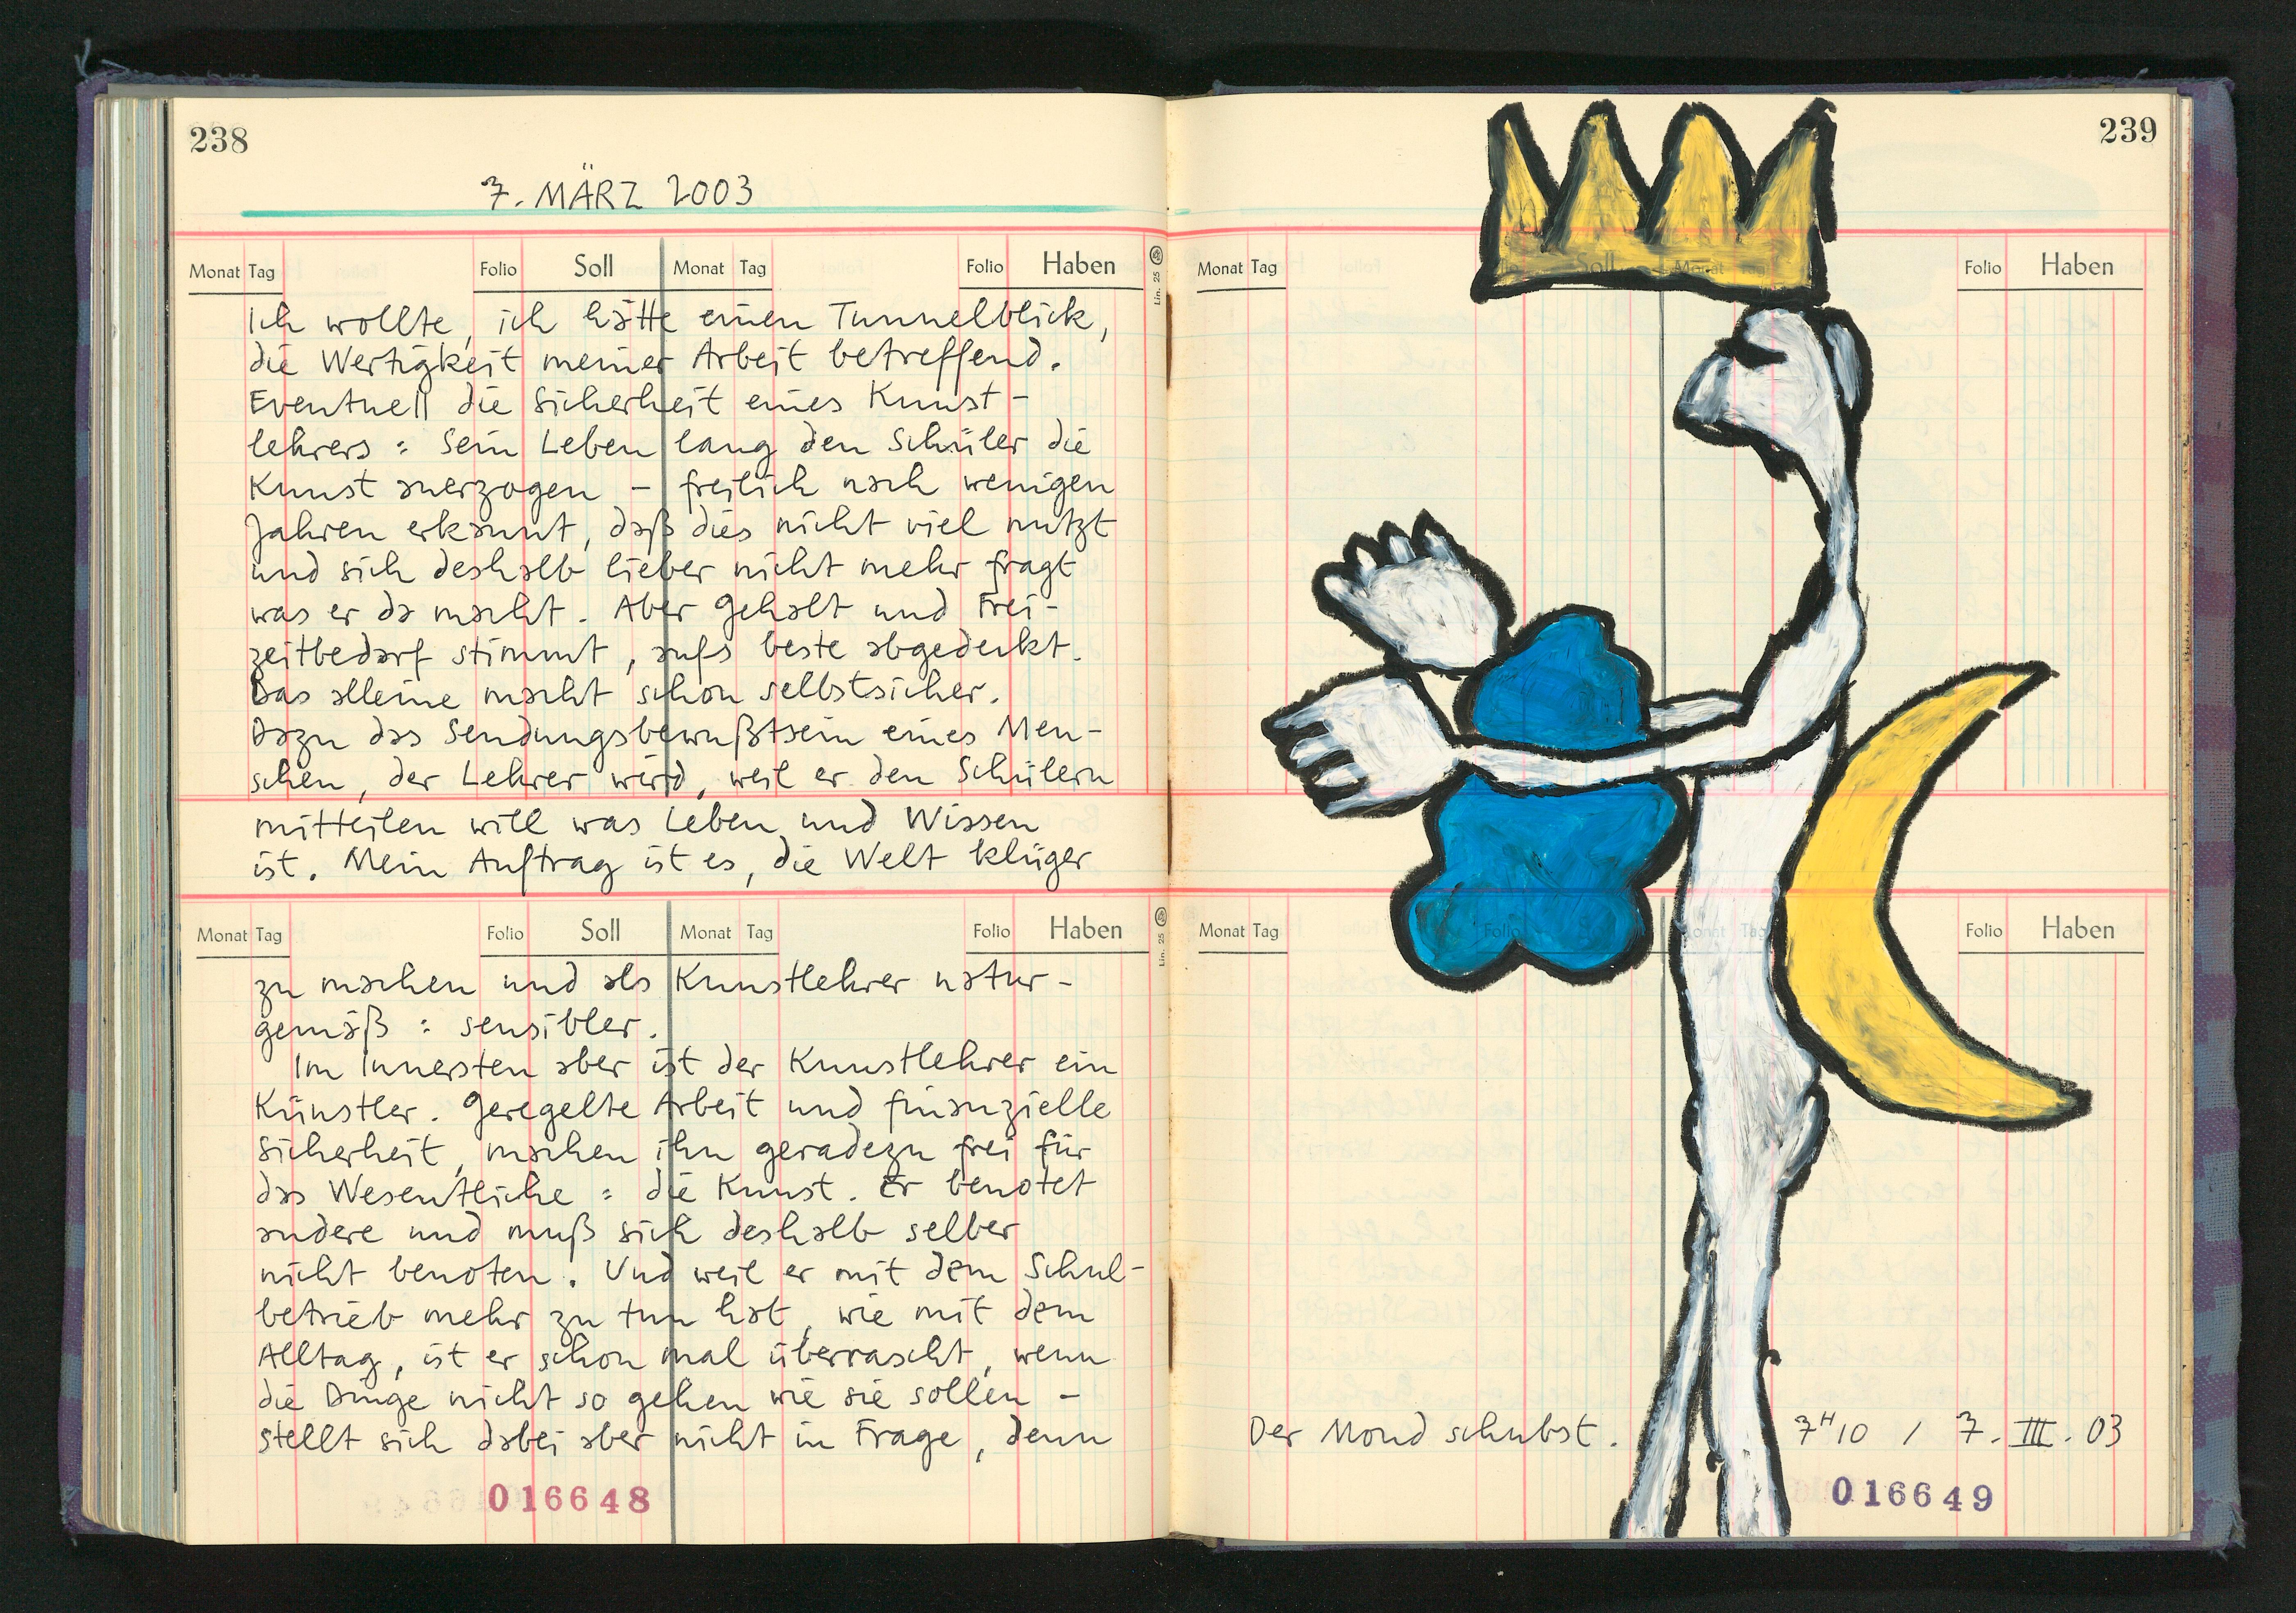 238
7. MÄRZ 2003
Monat Tag Folio Soll Monat Tag Folio Haben
Lin. 25
Ich wollte, ich hätte einen Tunnelblick,
die Wertigkeit meiner Arbeit betreffend.
Eventuell die Sicherheit eines Kunst-
lehrers : Sein Leben lang den Schüler die
Kunst anerzogen – freilich nach wenigen
Jahren erkannt, daß dies nicht viel nutzt
und sich deshalb lieber nicht mehr fragt
was er da macht. Aber Gehalt und Frei-
zeitbedarf stimmt, aufs beste abgedeckt.
Das alleine macht schon selbstsicher.
Dazu das Sendungsbewußtsein eines Men-
schen, der Lehrer wird, weil er den Schülern
mitteilen will was Leben und Wissen
ist. Mein Auftrag ist es, die Welt klüger
Monat Tag Folio Soll Monat Tag Folio Haben
Lin. 25
zu machen und als Kunstlehrer natur-
gemäß : sensibler.
Im Innersten aber ist der Kunstlehrer ein
Künstler. Geregelte Arbeit und finanzielle
Sicherheit, machen ihn geradezu frei für
das Wesentliche : die Kunst. Er benotet
andere und muß sich deshalb selber
nicht benoten. Und weil er mit dem Schul-
betrieb mehr zu tun hat, wie mit dem
Alltag, ist er schon mal überrascht, wenn
die Dinge nicht so gehen wie sie sollen –
stellt sich dabei aber nicht in Frage, denn
016648
239
Monat Tag Folio Soll Monat Tag Folio Haben
Monat Tag Folio Monat Tag Folio Haben
Der Mond schubst. 7H10 / 7. III. 03
016649